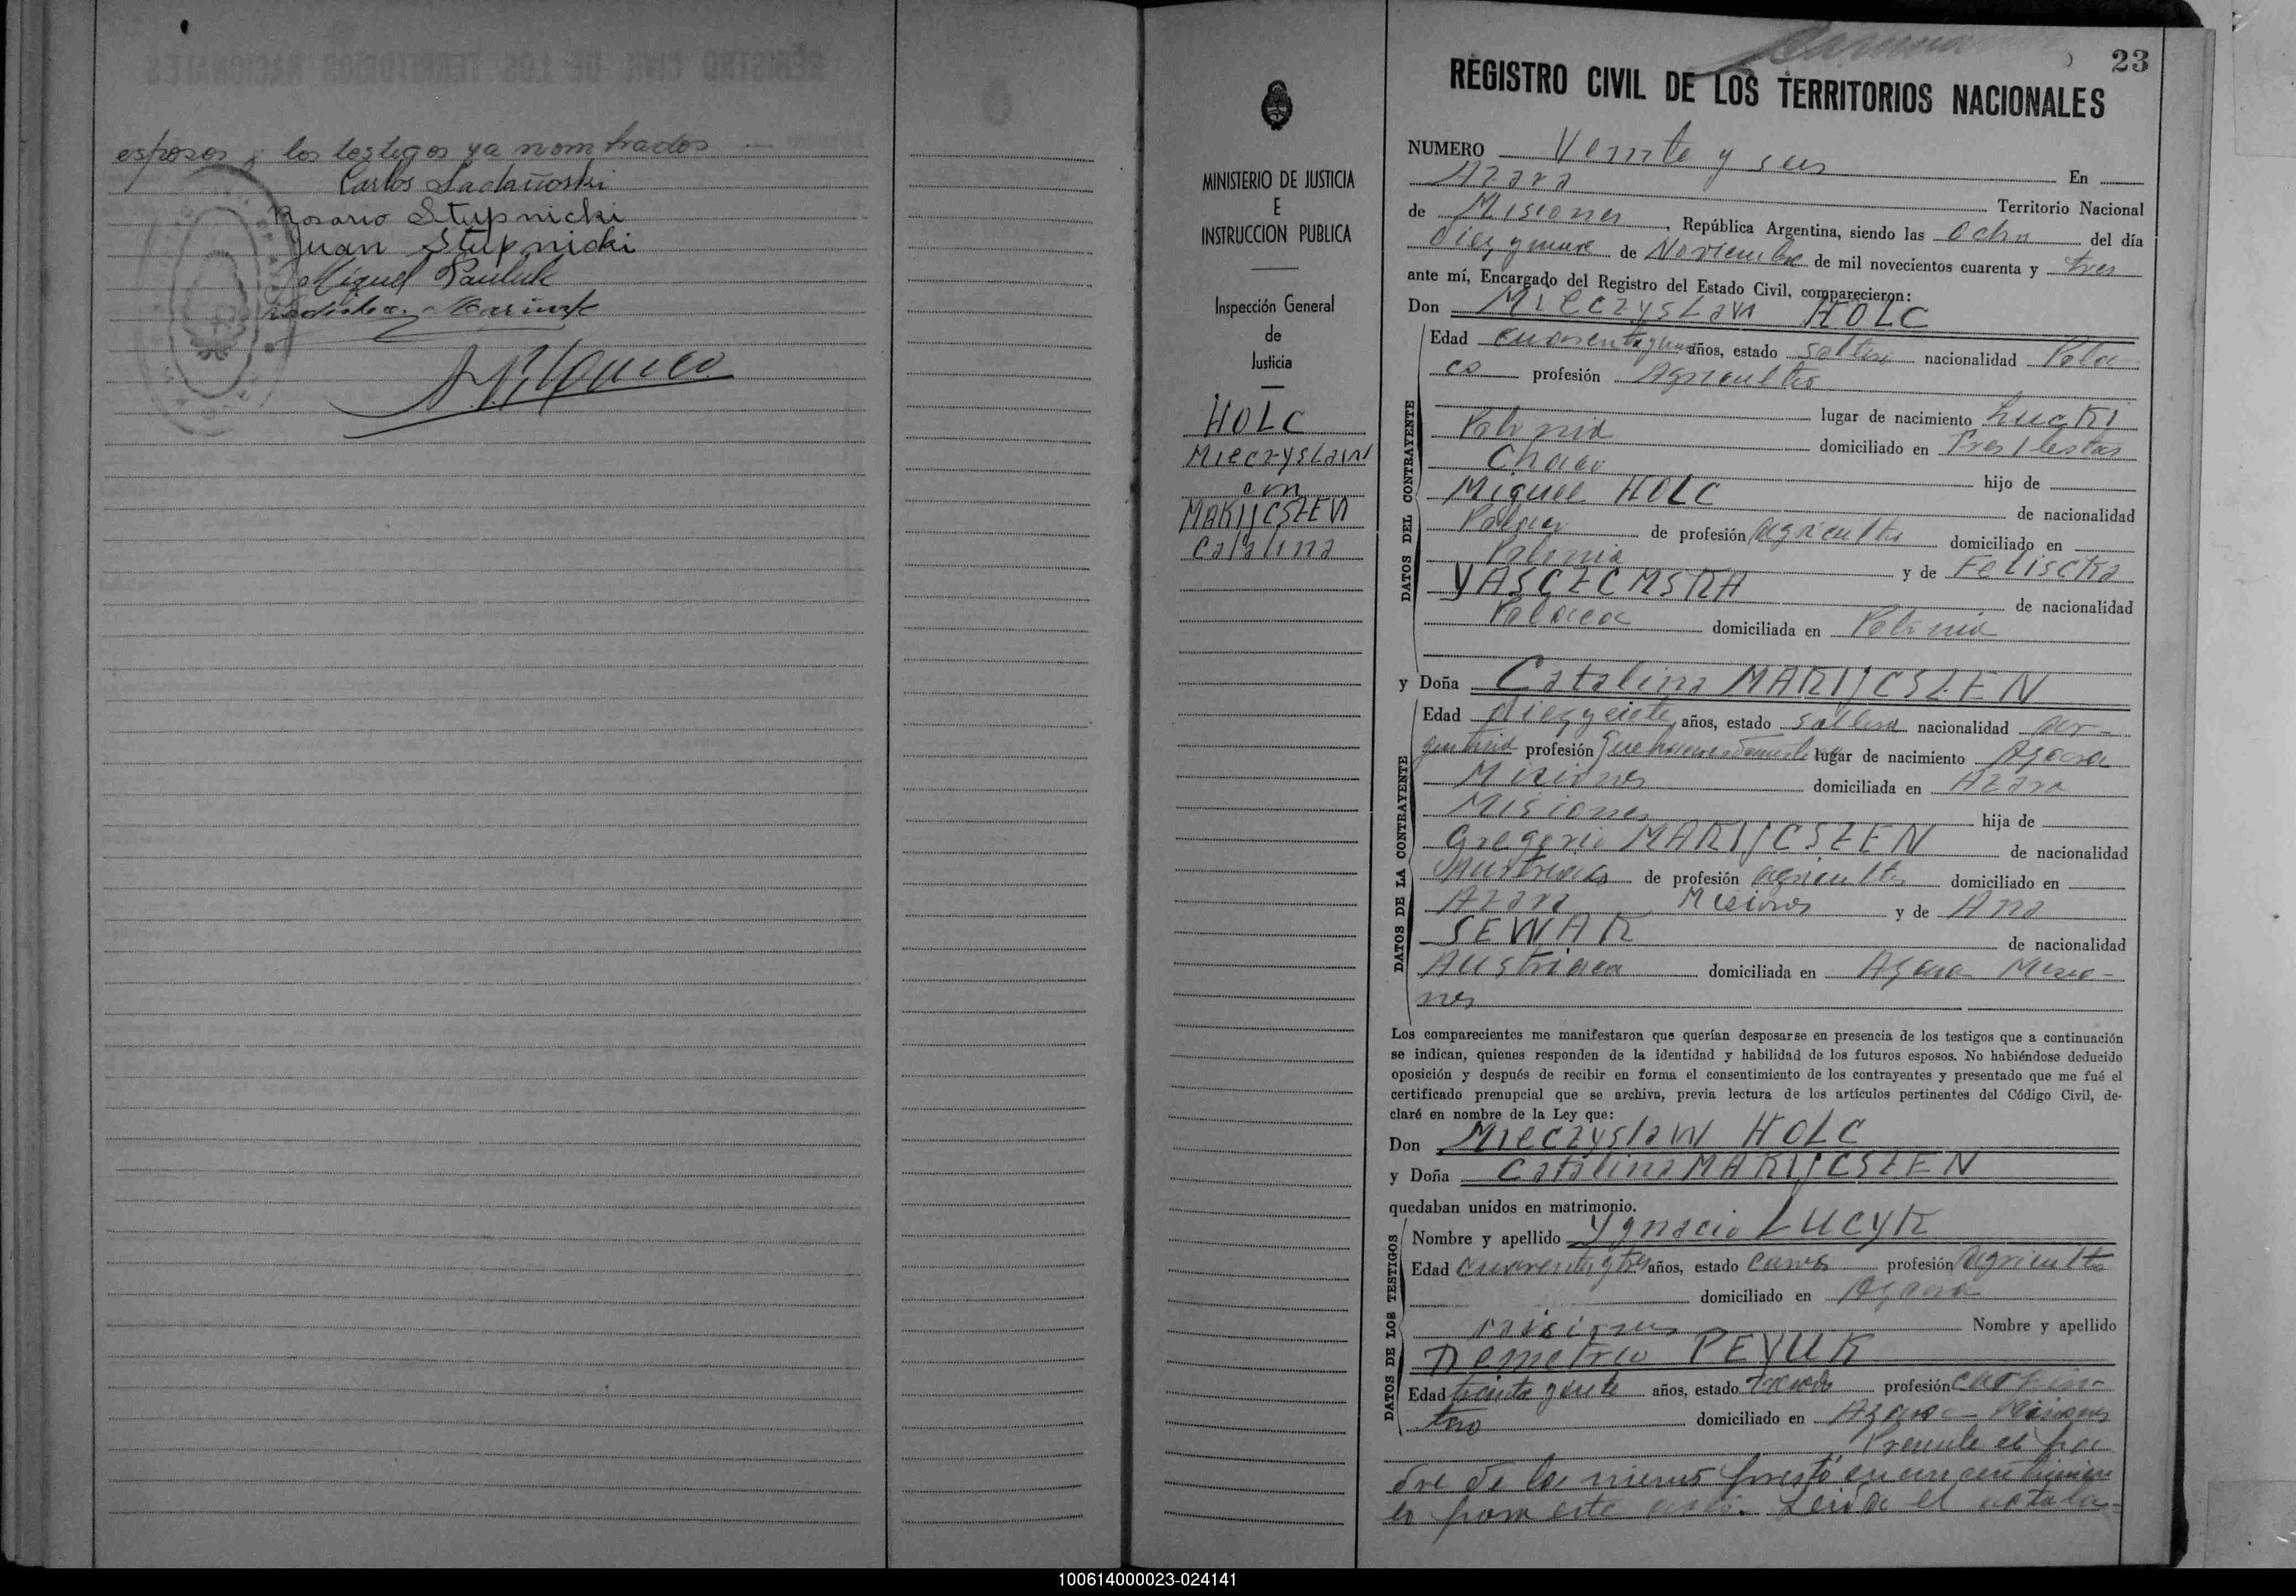 esposos y los testigos ya nombrados
Carlos
Rosario Stupnicki
Juan Stupnicki
Miguel Pauluk
23
REGISTRO CIVIL DE LOS TERRITORIOS NACIONALES
MINISTERIO DE JUSTICIA
E
INSTRUCCION PUBLICA
Inspección General
de
Justicia
HOLC
Mieczyslaw
con
MARIJCSZEN
Catalina
NUMERO Veinte y seis En
Azara Territorio Nacional
de Misiones, República Argentina, siendo las ocho del día
diez y nueve de Noviembre de mil novecientos cuarenta y tres
ante mí, Encargado del Registro del Estado Civil, comparecieron:
Don Mieczyslaw HOLC
Edad años, estado soltero nacionalidad Pola-
co profesión Agricultor
lugar de nacimiento Lucki
Polonia domiciliado en Tres Isletas
Chaco hijo de
Miguel HOLC de nacionalidad
Polaca de profesión agricultor domiciliado en
Polonia y de Feliscka
de nacionalidad
Polaca domiciliada en Polonia
y Doña Catalina MARIJCSZEN
Edad diez y siete años, estado soltera nacionalidad ar-
gentina profesión Quehaceres domésticos lugar de nacimiento Azara
Misiones domiciliada en Azara
Misiones hija de
Gregorio MARIJCSZEN de nacionalidad
Austriaca de profesión agricultor domiciliado en
Azara Misiones y de Ana
SEWAK de nacionalidad
Austriaca domiciliada en Azara Misio-
nes
DATOS DEL CONTRAYENTE
DATOS DE LA CONTRAYENTE
Los comparecientes me manifestaron que querían desposarse en presencia de los testigos que a continuación
se indican, quienes responden de la identidad y habilidad de los futuros esposos. No habiéndose deducido
oposición y después de recibir en forma el consentimiento de los contrayentes y presentado que me fué el
certificado prenupcial que se archiva, previa lectura de los artículos pertinentes del Código Civil, de-
claré en nombre de la Ley que:
Don Mieczyslaw HOLC
y Doña Catalina MARIJCSZEN
quedaban unidos en matrimonio.
Nombre y apellido Ygnacio LUCYK
Edad cuarenta y tres años, estado casado profesión Agricultor
domiciliado en Azara
Misiones Nombre y apellido
Demetrio PEYUK
Edad treinta y siete años, estado casado profesión carpin-
tero domiciliado en Azara Misiones
DATOS DE LOS TESTIGOS
Presente el pa
dre de la misma prestó su consentimien
to para este acto. Leida el acta la
100614000023-024141